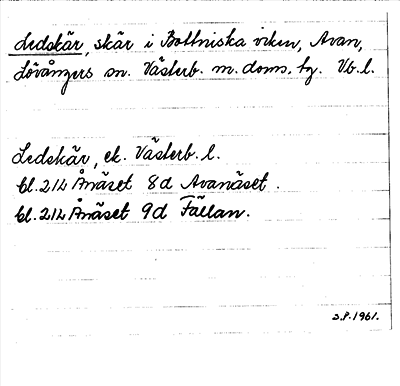 Ledskär, skär i Bottniska viken, Avan,
Lövångers sn. Västerb. m. doms. tg. Vb. l.
Ledskär, ek. Västerb. l.
bl. 21L Ånäset 8d Avanäset.
bl. 21L Ånäset 9d Fällan.
S.P. 1961.